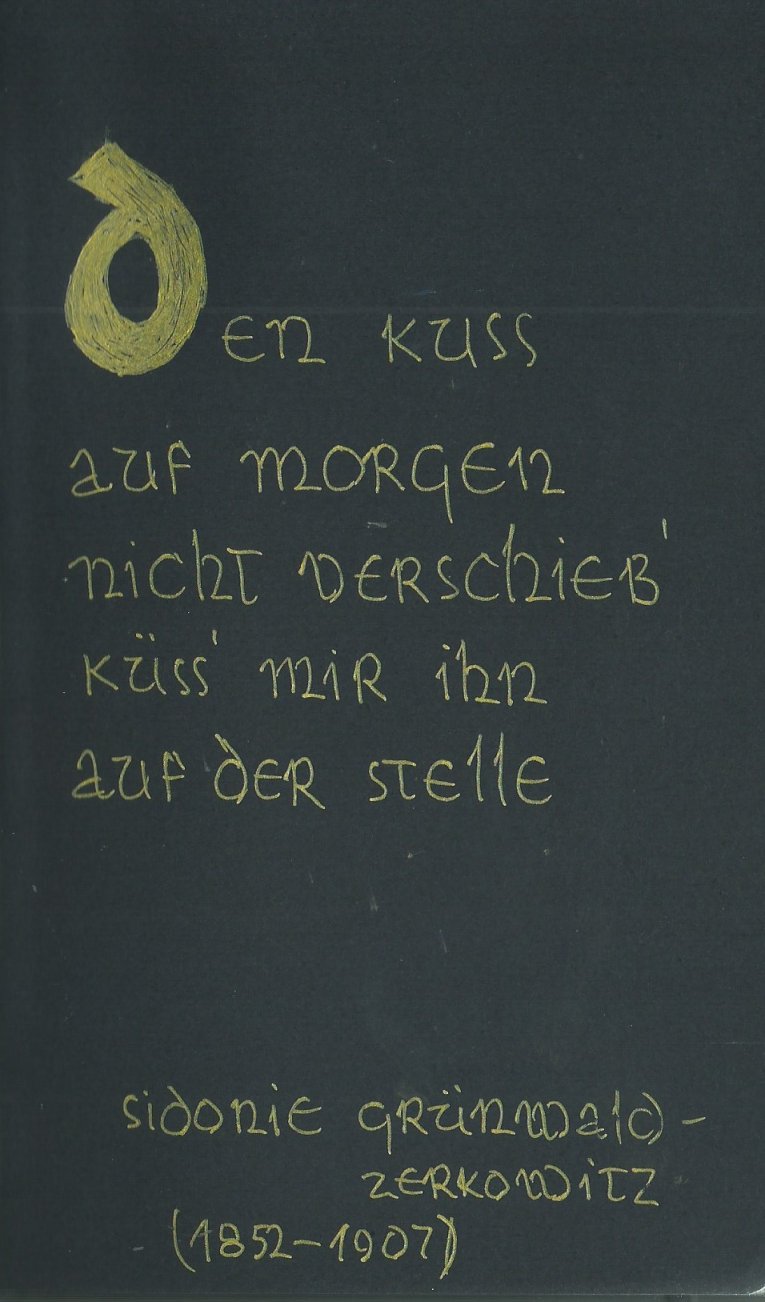 Den Kuss
auf morgen
nicht verschieb'
küss' mir ihn
auf der Stelle
Sidonie Grünwald-
Zerkowitz
(1852-1907)